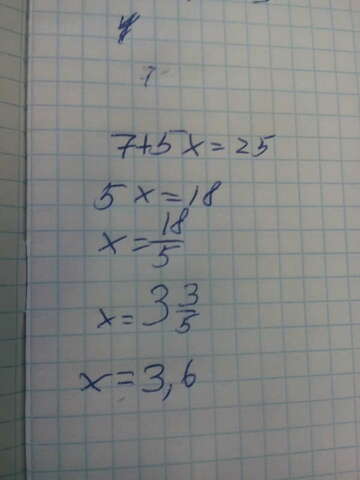 y
7
7+5x=25
5x=18
x=18/5
x=3 3/5
x=3,6